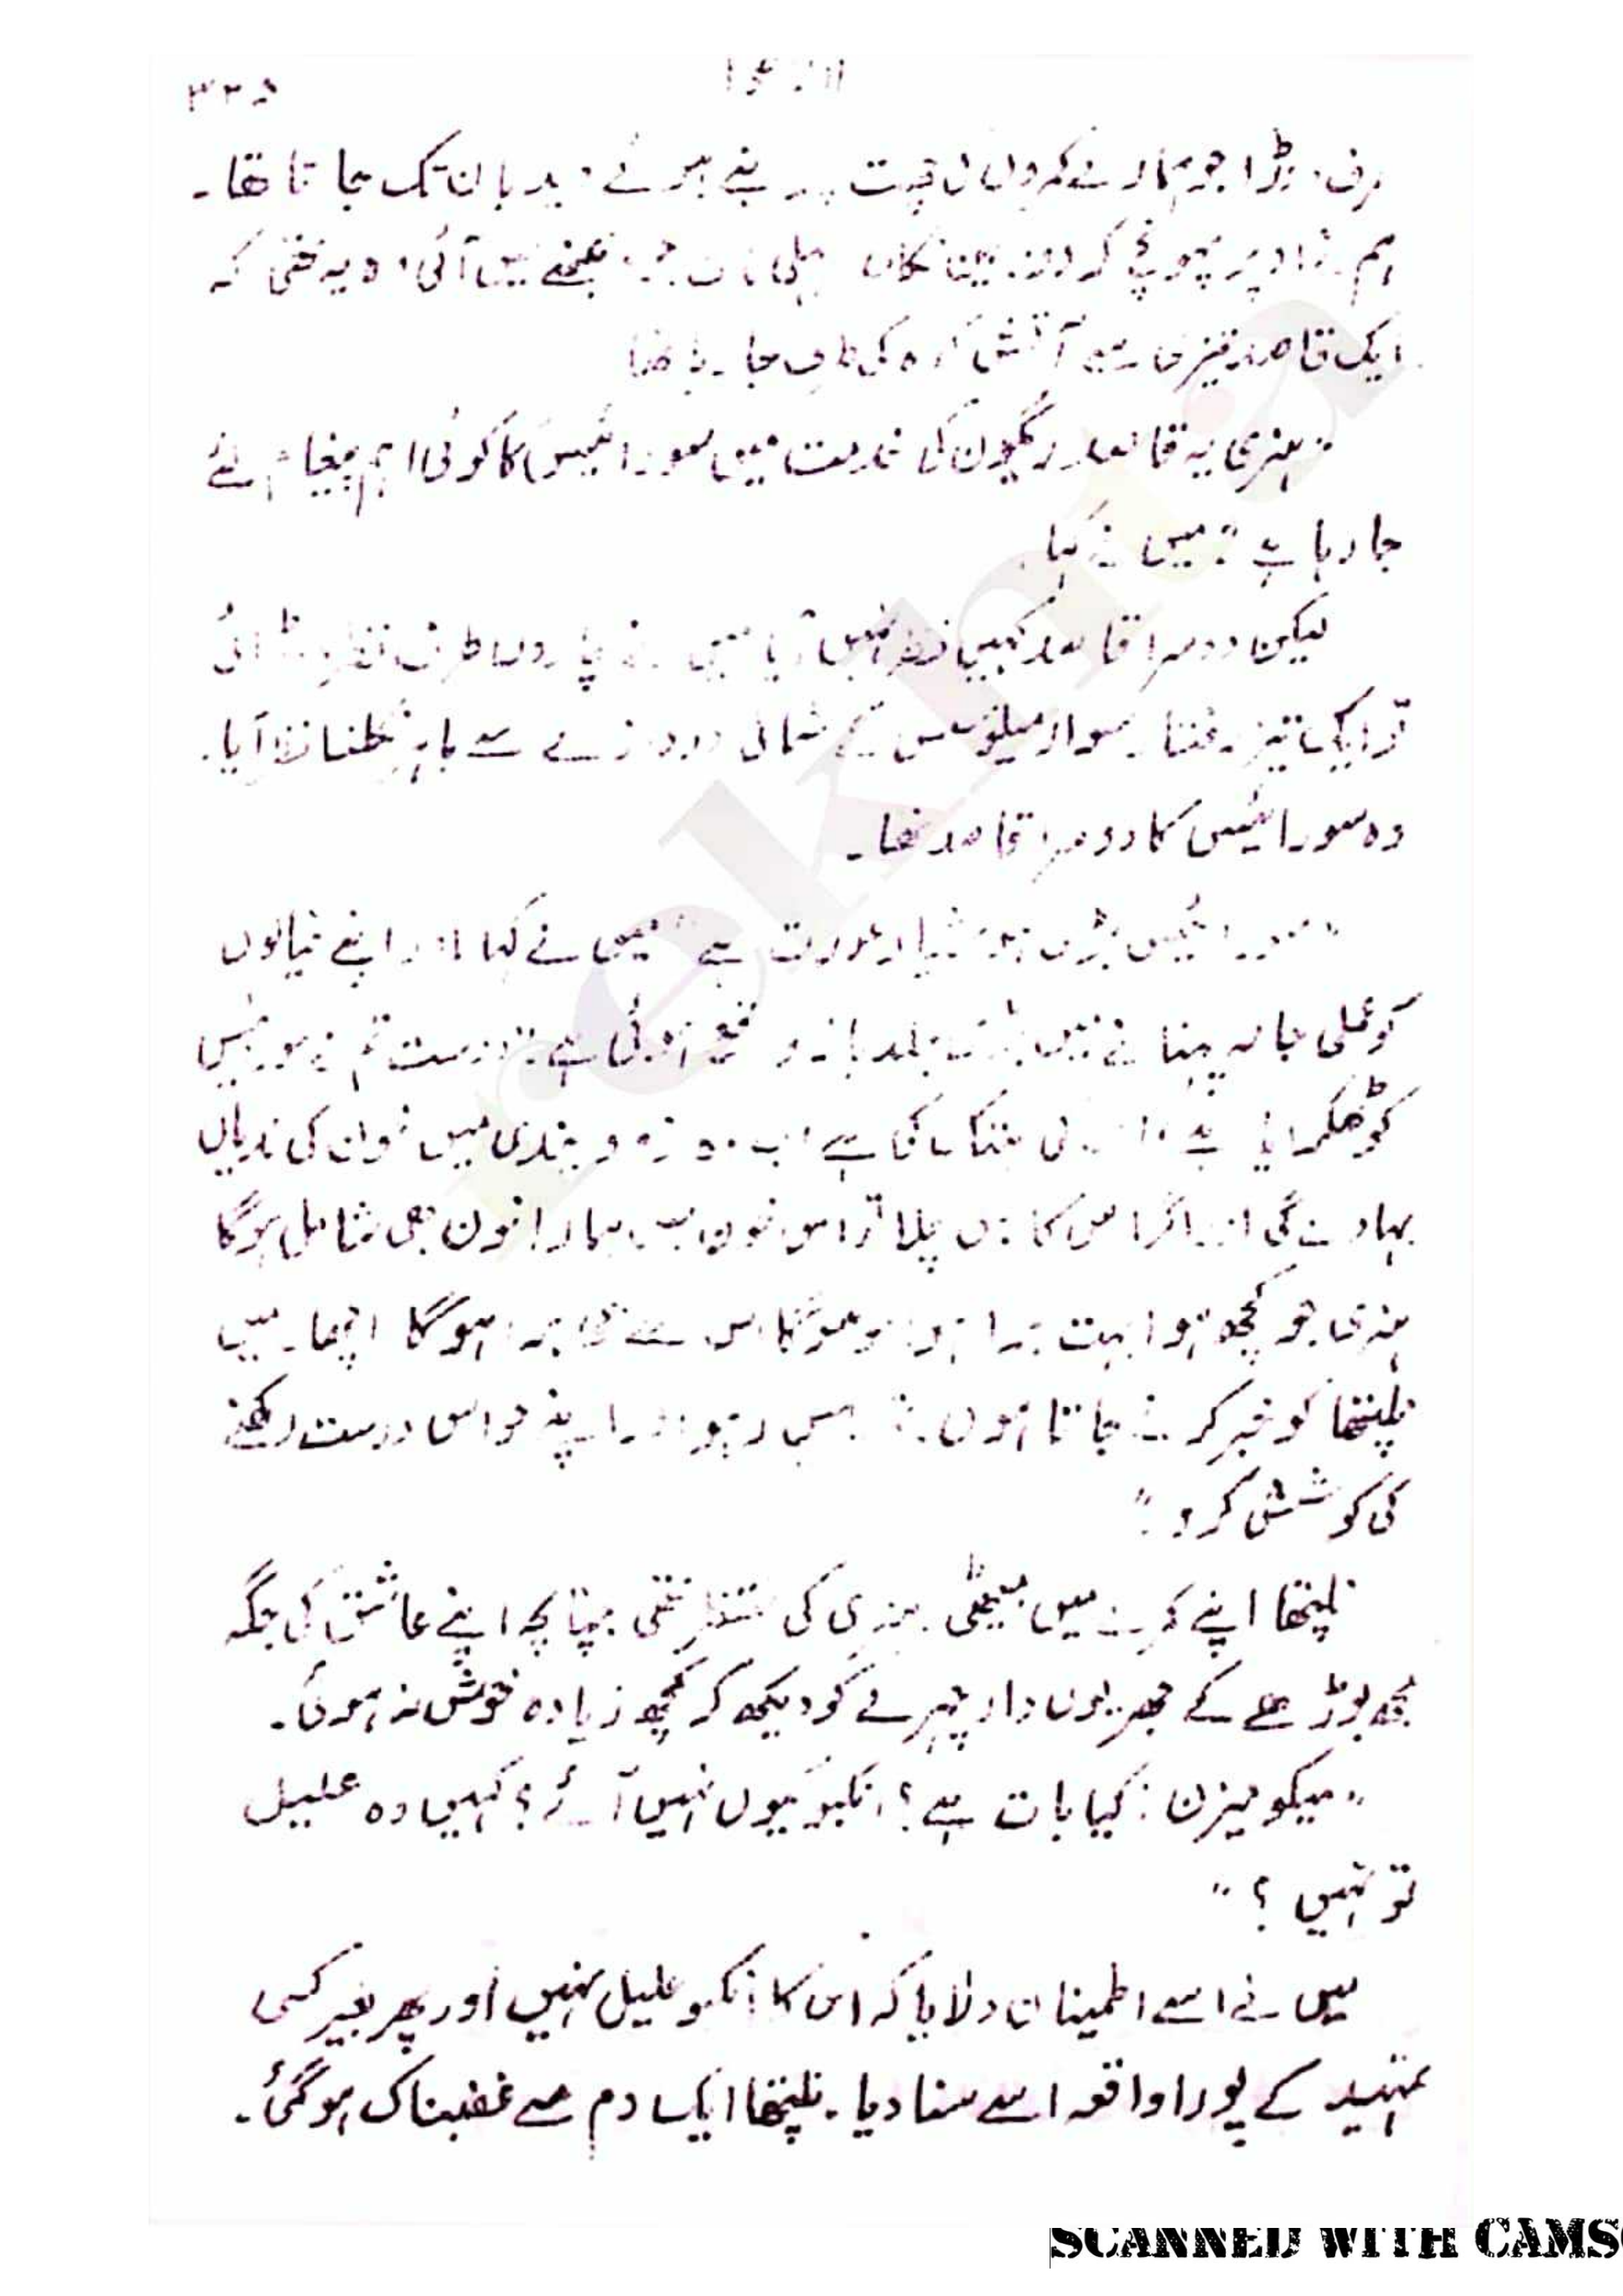 ۳۲۵
طرف دوڑا جو ہمارے کمروں کی چھت پر بنے ہوئے دیدبان تک جاتا تھا۔
ہم اوپر پہونچے کہ دونوں پہلی بات جو دیکھنے میں آئی وہ یہ تھی کہ
ایک قاصد تیزی سے آتش کدہ کی طرف جا رہا تھا
"ہنری یہ قاصد رگیون کی خدمت میں سورائیس کا کوئی اہم پیغام لئے
جا رہا ہے" میں نے کہا۔
لیکن دوسرا قاصد کہیں نظر نہیں آیا میں نے چاروں طرف نظر دوڑائی
تو ایک تیز رفتار سوار میلوسس کے شمالی دروازے سے باہر نکلتا نظر آیا۔
وہ سورائیس کا دوسرا قاصد تھا۔
"سورائیس بڑی ہوشیار عورت ہے" میں نے کہا "اور اپنے خیالوں
کو عملی جامہ پہنانے میں بڑی جلد باز واقع ہوئی ہے۔ دوست تم نے سورائیس
کو ٹھکرایا ہے، اس کی ہتک کی ہے اب وہ زو وینڈی میں خون کی ندیاں
بہا دے گی اور اگر اس کا بس چلا تو اس خون میں ہمارا خون بھی شامل ہوگا
ہنری جو کچھ ہوا بہت برا ہوا اور جو ہوگا اس سے زیادہ برا ہوگا اچھا۔ میں
نلپتھا کو خبر کرنے جاتا ہوں۔ تم یہیں رہو اور اپنے حواس درست رکھنے
کی کوشش کرو۔"
نلپتھا اپنے کمرے میں بیٹھی ہنری کی منتظر تھی چنانچہ اپنے عاشق کی جگہ
مجھ بوڑھے کے جھریوں دار چہرے کو دیکھ کر کچھ زیادہ خوش نہ ہوئی۔
"میکومیزن! کیا بات ہے؟ انکبو کیوں نہیں آئے؟ کہیں وہ علیل
تو نہیں؟"
میں نے اسے اطمینان دلایا کہ اس کا انکبو علیل نہیں اور پھر بغیر کسی
تمہید کے پورا واقعہ اسے سنا دیا۔ نلپتھا ایک دم سے غضبناک ہو گئی۔
rekhta
SCANNED WITH CAMS